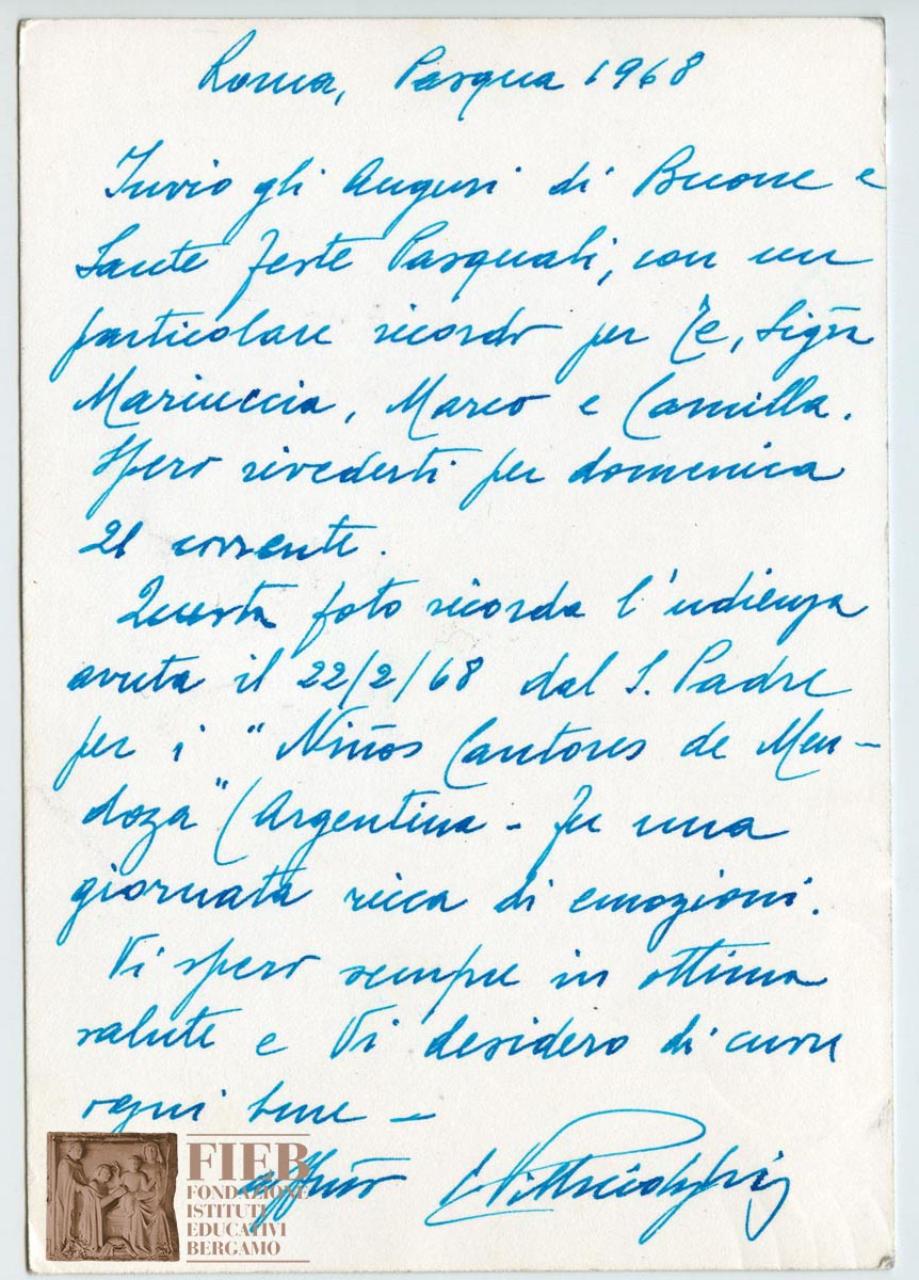 Roma, Pasqua 1968
Invio gli Auguri di Buone e
Sante Feste Pasquali, con un
particolare ricordo per Te, Sigra
Mariuccia, Marco e Camilla.
Spero rivederti per domenica
21 corrente.
Questa foto ricorda l'udienza
avuta il 22/2/68 dal S. Padre
per i "Niños Cantores de Men-
doza" (Argentina - Fu una
giornata ricca di emozioni.
Vi spero sempre in ottima
salute e Vi desidero di cuore
ogni bene -
FIEB
FONDAZIONE
ISTITUTI
EDUCATIVI
BERGAMO